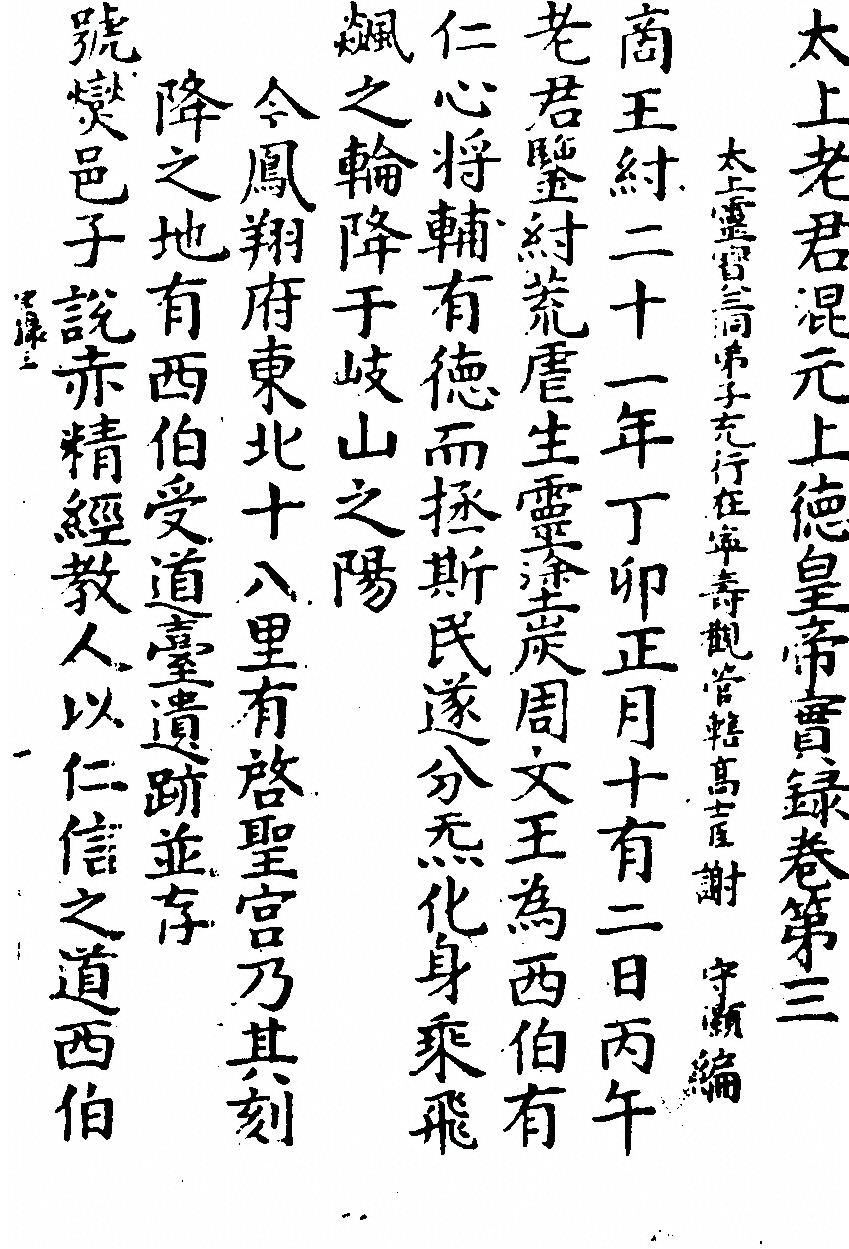 太上老君混元上德皇帝實錄卷第三
太上靈寶三洞弟子充行在寧壽觀管轄高士臣謝守灝編
商王紂二十一年丁卯正月十有二日丙午
老君鑒紂荒虐生靈塗炭周文王為西伯有
仁心將輔有德而拯斯民遂分炁化身乘飛
飈之輪降于岐山之陽
今鳳翔府東北十八里有啓聖宮乃其刻
降之地有西伯受道臺遺跡並存
號爕邑子說赤精經教人以仁信之道西伯